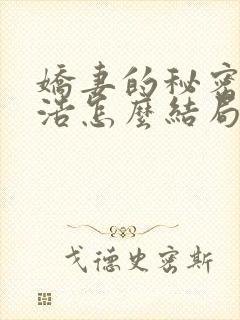 嬌妻的秘密
活怎麼結局
戈德史密斯